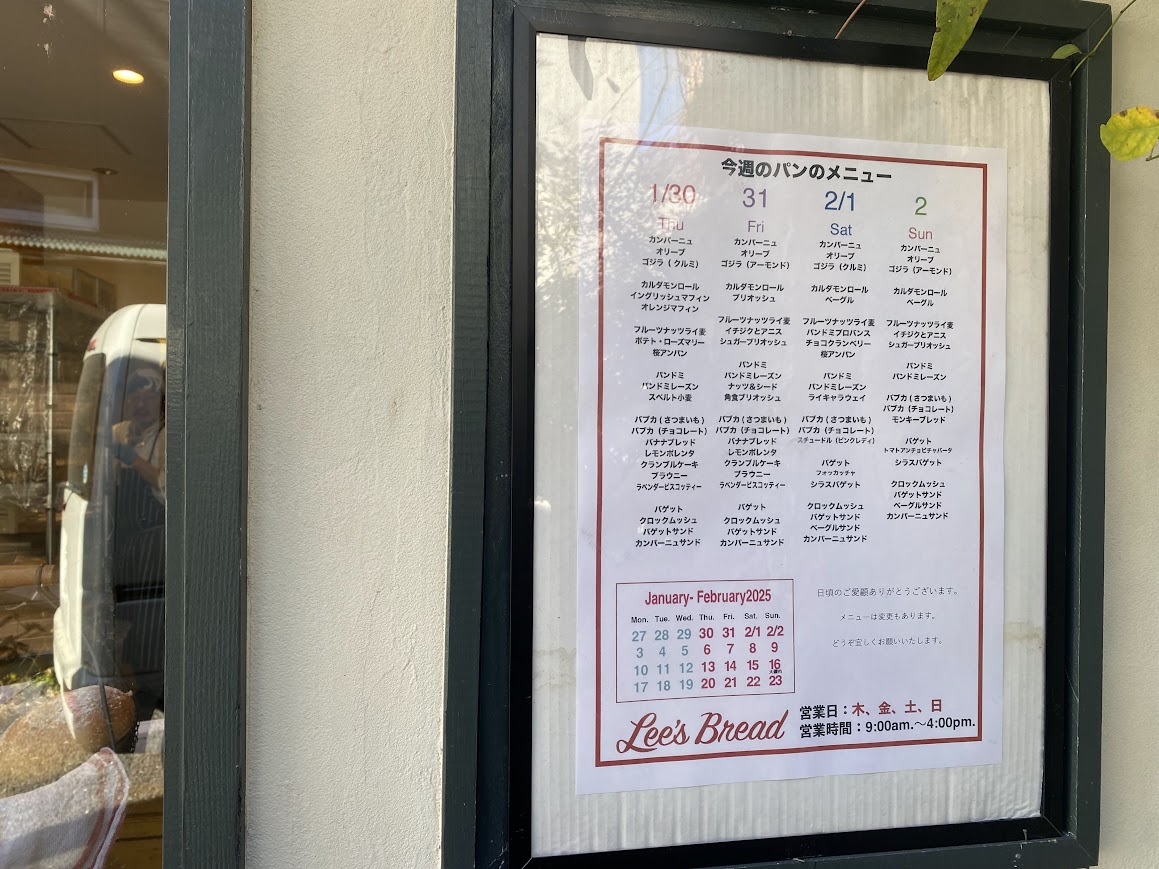 今週のパンのメニュー
1/30
Thu
カンパーニュ
オリーブ
ゴジラ（クルミ）
カルダモンロール
イングリッシュマフィン
オレンジマフィン
フルーツナッツライ麦
ポテト・ローズマリー
桜アンパン
パンドミ
パンドミレーズン
スペルト小麦
バブカ（さつまいも）
バブカ（チョコレート）
バナナブレッド
レモンポレンタ
クランブルケーキ
ブラウニー
ラベンダービスコッティー
バゲット
クロックムッシュ
バゲットサンド
カンパーニュサンド
31
Fri
カンパーニュ
オリーブ
ゴジラ（アーモンド）
カルダモンロール
ブリオッシュ
フルーツナッツライ麦
イチジクとアニス
シュガーブリオッシュ
パンドミ
パンドミレーズン
ナッツ&シード
角食ブリオッシュ
バブカ（さつまいも）
バブカ（チョコレート）
バナナブレッド
レモンポレンタ
クランブルケーキ
ブラウニー
ラベンダービスコッティー
バゲット
クロックムッシュ
バゲットサンド
カンパーニュサンド
2/1
Sat
カンパーニュ
オリーブ
ゴジラ（クルミ）
カルダモンロール
ベーグル
フルーツナッツライ麦
パンドミプロバンス
チョコクランベリー
桜アンパン
パンドミ
パンドミレーズン
ライキャラウェイ
バブカ（さつまいも）
バブカ（チョコレート）
スチュードル（ピンクレディ）
バゲット
フォッカッチャ
シラスバゲット
クロックムッシュ
バゲットサンド
ベーグルサンド
カンパーニュサンド
2
Sun
カンパーニュ
オリーブ
ゴジラ（アーモンド）
カルダモンロール
ベーグル
フルーツナッツライ麦
イチジクとアニス
シュガーブリオッシュ
パンドミ
パンドミレーズン
バブカ（さつまいも）
バブカ（チョコレート）
モンキーブレッド
バゲット
トマトアンチョビチャバータ
シラスバゲット
クロックムッシュ
バゲットサンド
ベーグルサンド
カンパーニュサンド
January- February2025
Mon. Tue. Wed. Thu. Fri. Sat. Sun.
27 28 29 30 31 2/1 2/2
3 4 5 6 7 8 9
10 11 12 13 14 15 16
17 18 19 20 21 22 23
日頃のご愛顧ありがとうございます。
メニューは変更もあります。
どうぞ宜しくお願いいたします。
Lee's Bread
営業日：木、金、土、日
営業時間：9:00am.〜4:00pm.